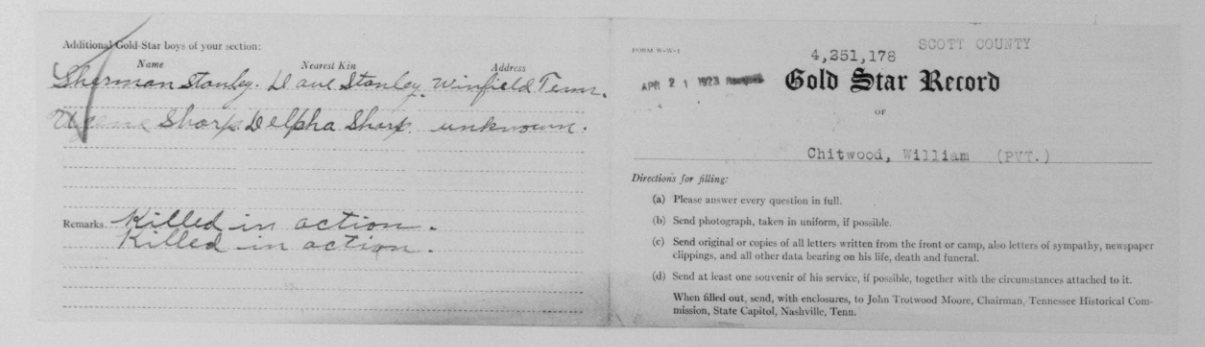 Additional Gold Star boys of your section:
Name Nearest Kin Address
Sherman Stanley. Dave Stanley. Winfield Tenn.
Sharp. Delpha Sharp. unknown.
Remarks. Killed in action.
Killed in action.
FORM W-W-1
SCOTT COUNTY
4,251,178
APR 21 1923
Gold Star Record
OF
Chitwood, William (PVT.)
Directions for filling:
(a) Please answer every question in full.
(b) Send photograph, taken in uniform, if possible.
(c) Send original or copies of all letters written from the front or camp, also letters of sympathy, newspaper
clippings, and all other data bearing on his life, death and funeral.
(d) Send at least one souvenir of his service, if possible, together with the circumstances attached to it.
When filled out, send, with enclosures, to John Trotwood Moore, Chairman, Tennessee Historical Com-
mission, State Capitol, Nashville, Tenn.